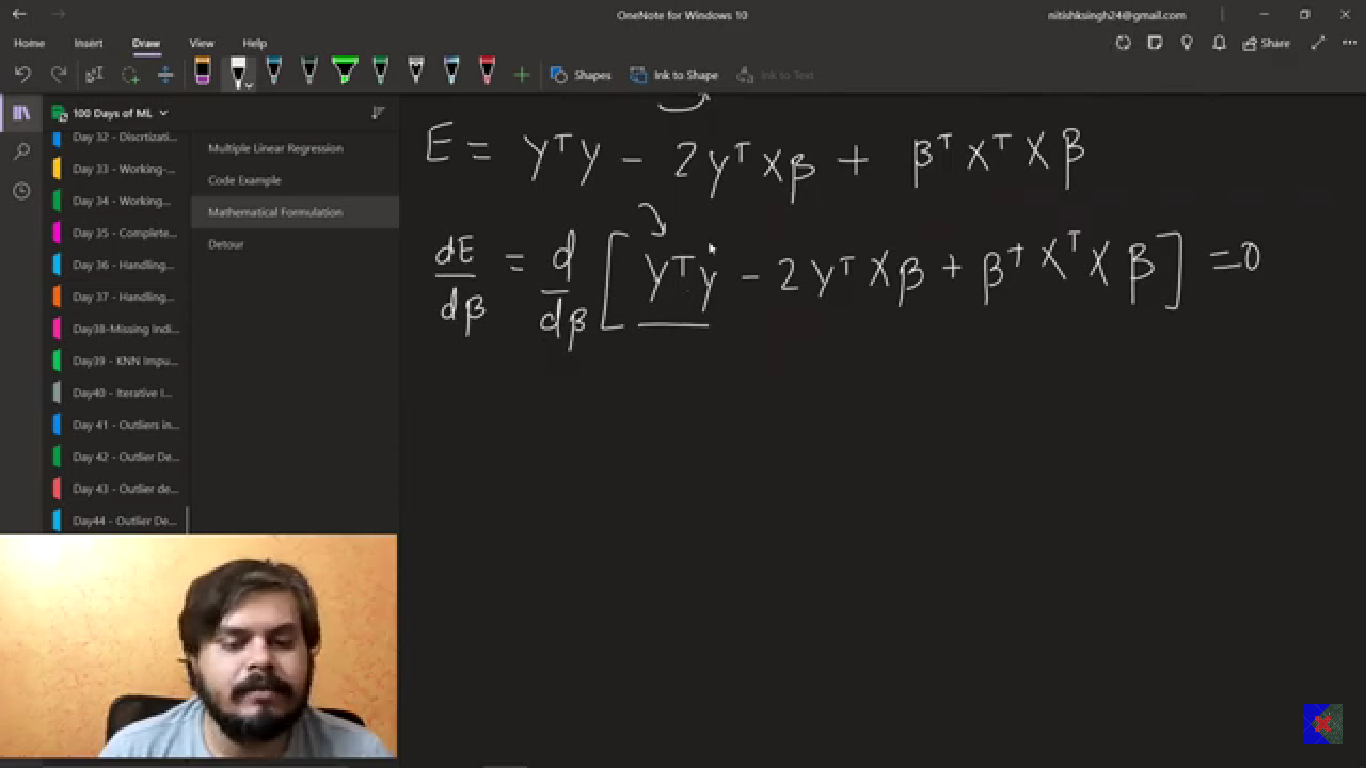 OneNote for Windows 10
nitishksingh24@gmail.com
Home Insert Draw View Help
Share
Shapes Ink to Shape Ink to Text
100 Days of ML
Day 32 - Discrtizati...
Day 33 - Working-...
Day 34 - Working...
Day 35 - Complete...
Day 36 - Handling...
Day 37 - Handling...
Day38-Missing Indi...
Day39 - KNN Impu...
Day40 - Iterative I...
Day 41 - Outliers in...
Day 42 - Outlier De...
Day 43 - Outlier de...
Day44 - Outlier De...
Multiple Linear Regression
Code Example
Mathematical Formulation
Detour
E = yᵀy - 2yᵀXβ + βᵀXᵀXβ
dE/dβ = d/dβ [yᵀy - 2yᵀXβ + βᵀXᵀXβ] = 0